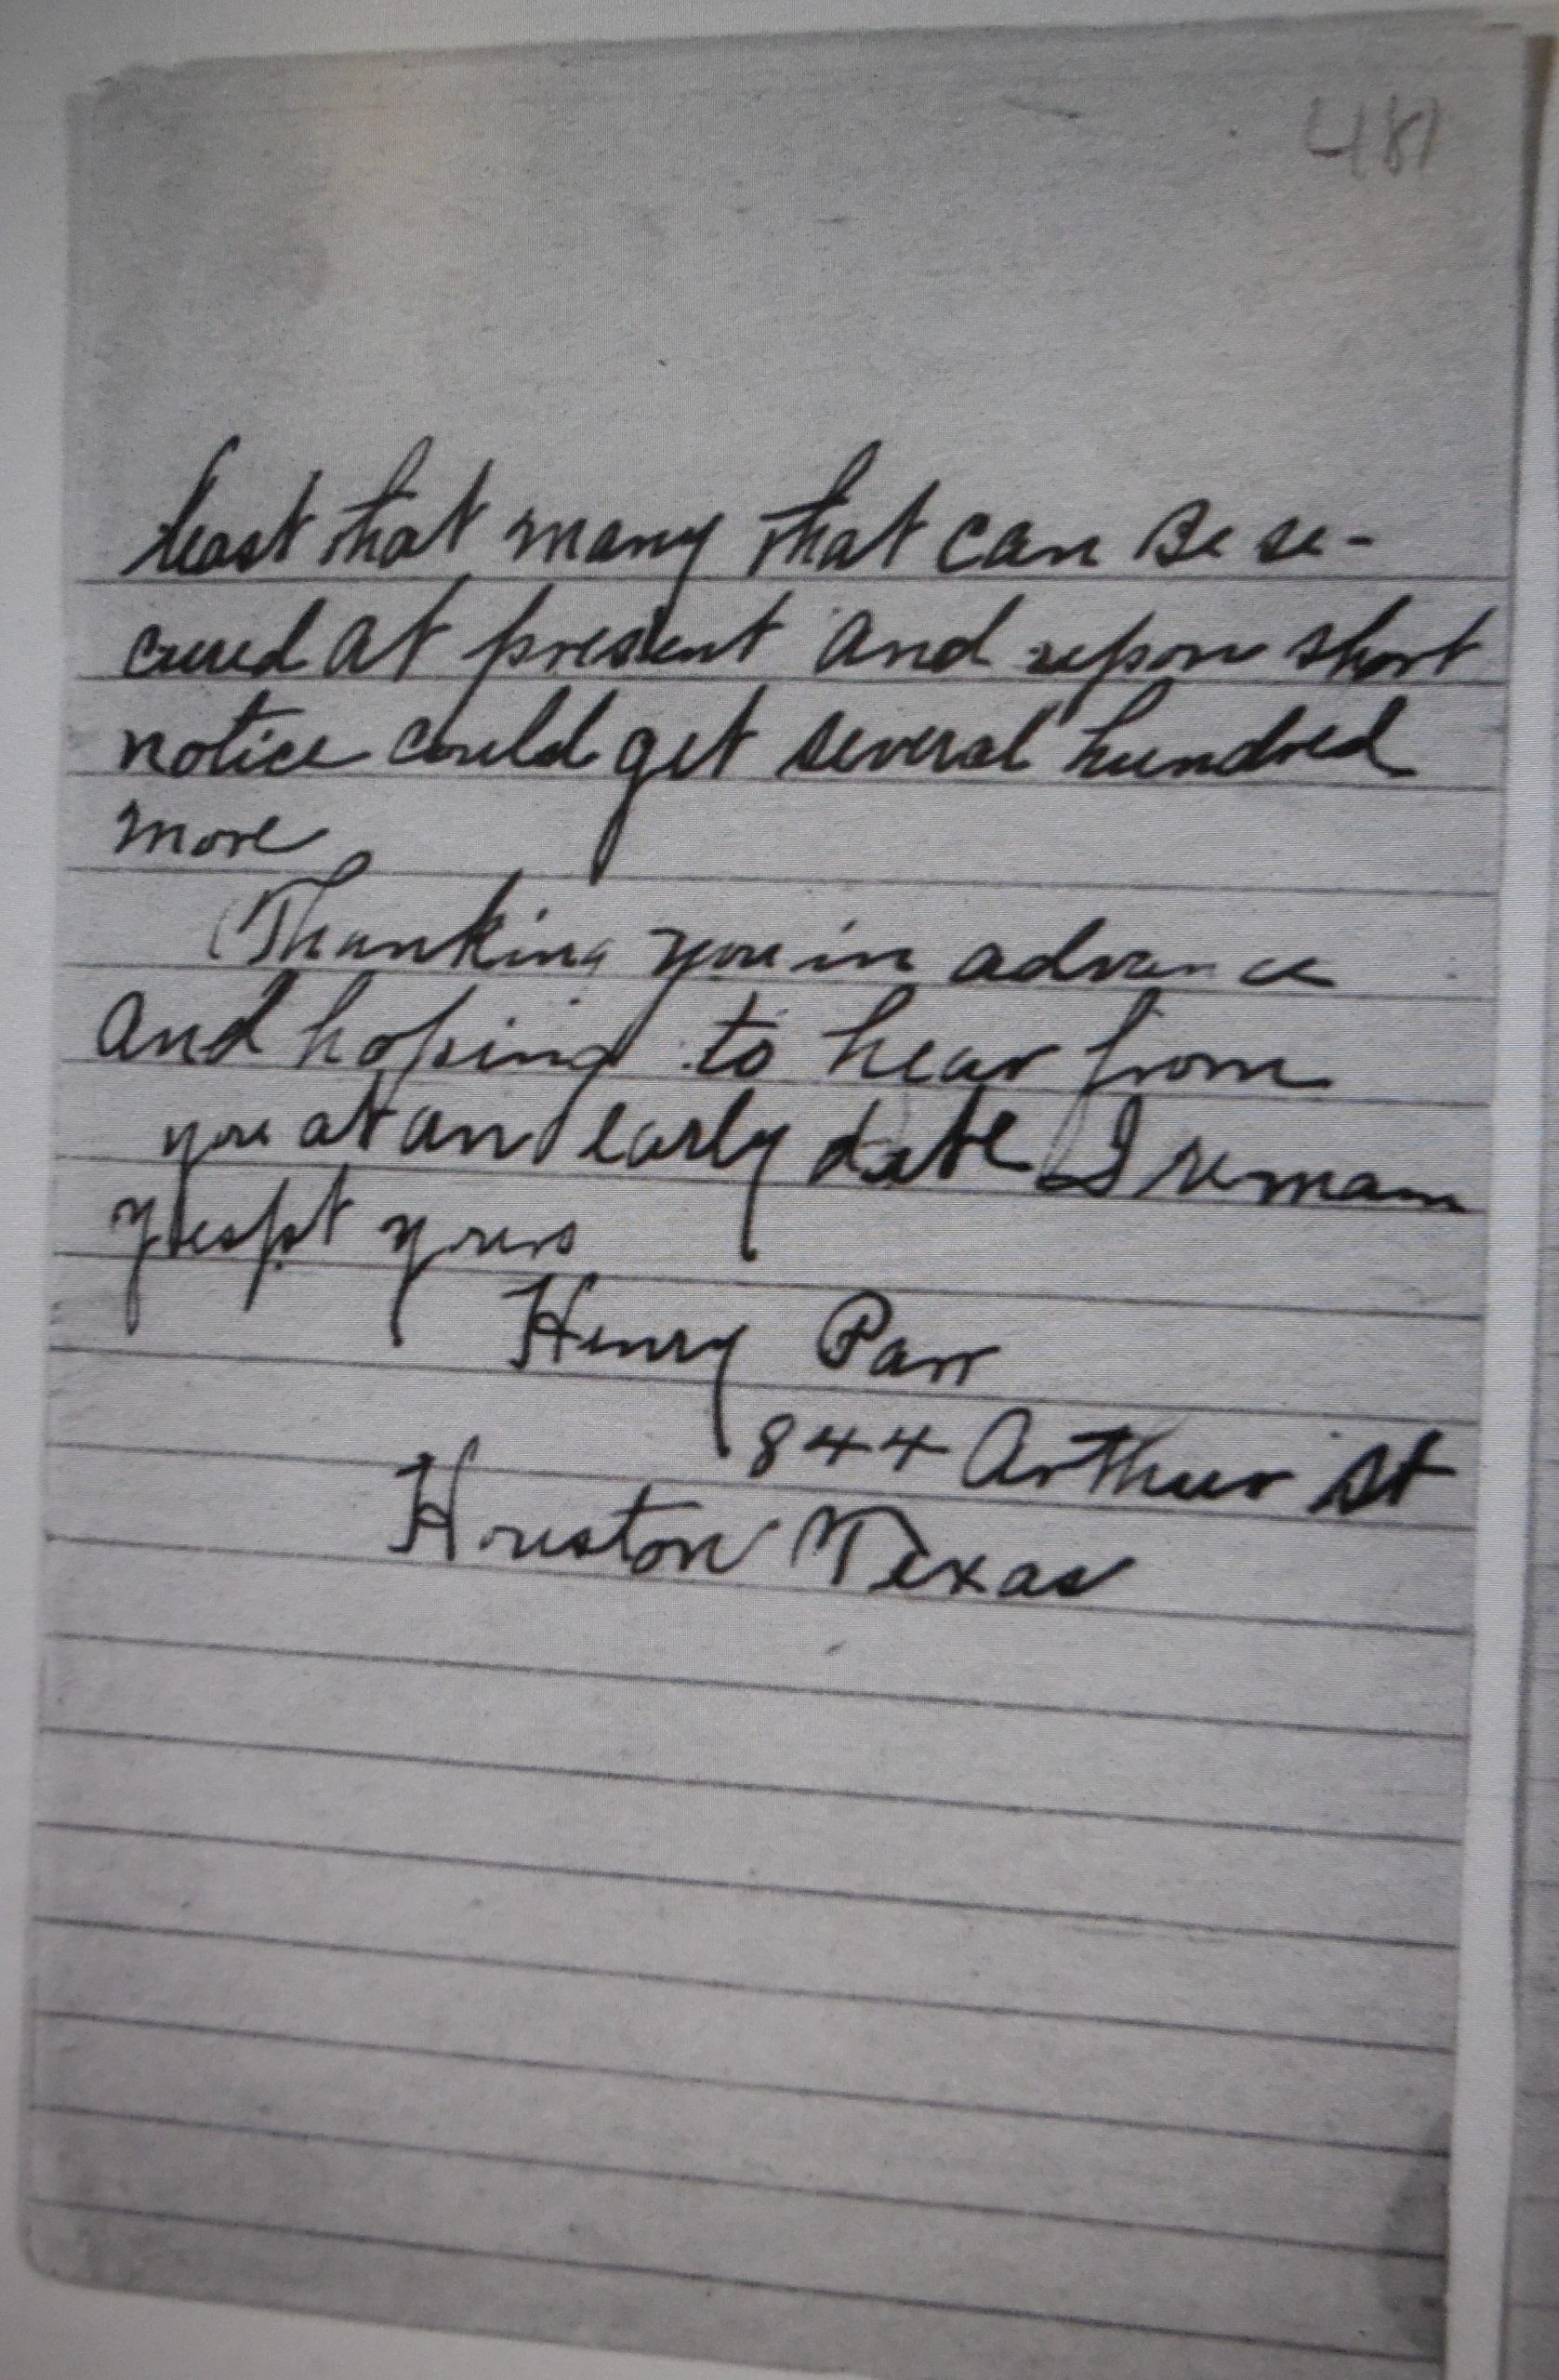 481
least that many that can Be se-
cured at present and upon short
notice could get several hundred
more
Thanking you in advance
and hoping to hear from
you at an early date I remain
respt yours
Henry Parr
844 Arthur St
Houston Texas